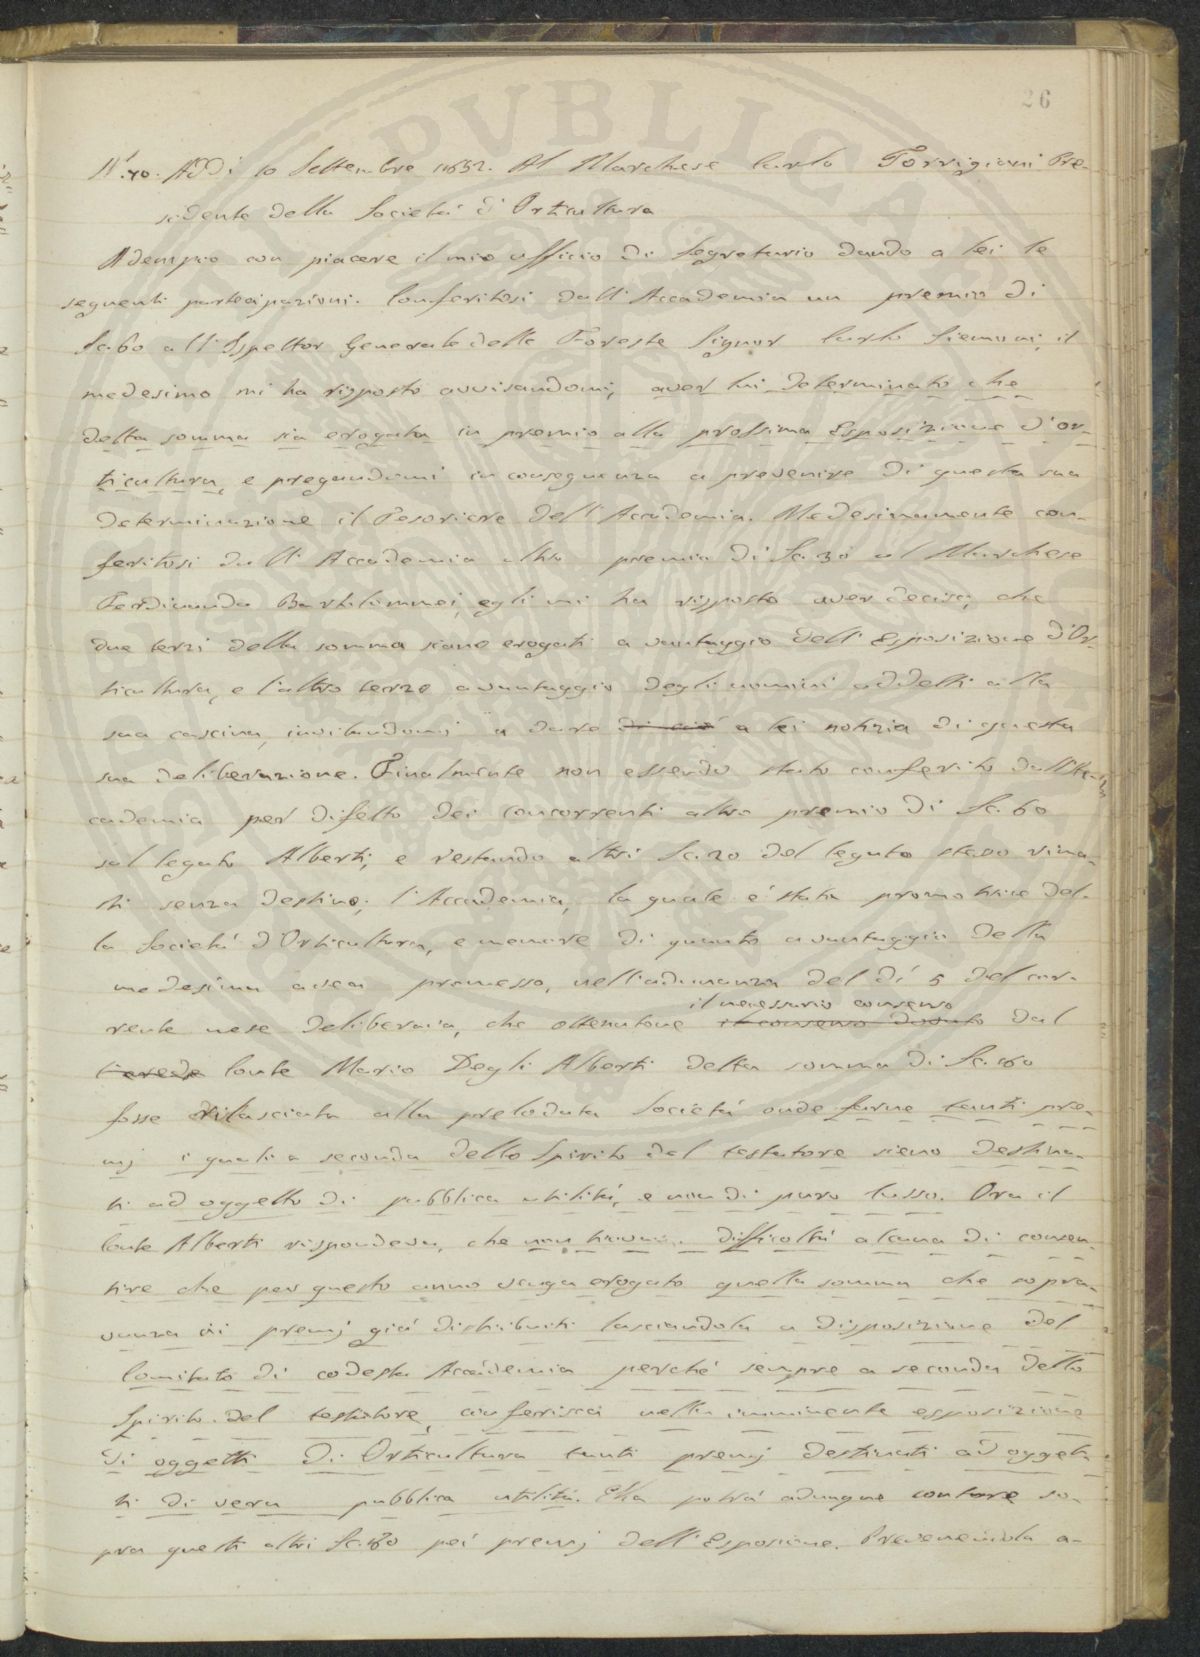 26
N.° 70. Addì 10 Settembre 1852. Al Marchese Carlo Torrigiani Pre-
sidente della Società d'Orticultura
Adempio con piacere il mio ufficio di Segretario dando a lei le
seguenti partecipazioni. Conferitosi dall'Accademia un premio di
Sc. 60 all'Ispettor Generale delle Foreste Signor Carlo Siemoni, il
medesimo mi ha risposto avvisandomi, aver lui determinato che
detta somma sia erogata in premio alla prossima Esposizione d'or-
ticultura, e pregandomi in conseguenza a prevenire di questa sua
determinazione il Tesoriere dell'Accademia. Medesimamente con-
feritosi dall'Accademia altro premio di Sc. 30 al Marchese
Ferdinando Bartolommei, egli mi ha risposto aver deciso, che
due terzi della somma siano erogati a vantaggio dell'Esposizione d'Or-
ticultura, e l'altro terzo a vantaggio degli uomini addetti alla
sua cascina, invitandomi a dare di ciò a lei notizia di questa
sua deliberazione. Finalmente non essendo stato conferito dall'Ac-
cademia per difetto dei concorrenti altro premio di Sc. 60
sul legato Alberti, e restando altri Sc. 20 del legato stesso rima-
sti senza destino; l'Accademia, la quale è stata promotrice del-
la Società d'Orticultura, e memore di quanto a vantaggio della
medesima avea promesso, nell'adunanza del dì 5 del cor-
rente mese deliberava, che ottenutone il consenso dovuto dal
il necessario consenso
l'erede Conte Mario Degli Alberti detta somma di Sc. 80
fosse rilasciata alla prelodata Società onde farne tanti pre-
mj i quali a seconda dello Spirito del testatore sieno destina-
ti ad oggetto di pubblica utilità, e non di puro lusso. Ora il
Conte Alberti rispondeva, che non trovava difficoltà alcuna di consen-
tire che per questo anno venga erogato quella somma che sopra-
vanza ai premj già distribuiti lasciandola a disposizione del
Comitato di codesta Accademia perché sempre a seconda dello
Spirito del testatore, conferisca nella imminente esposizione
di oggetti di Orticultura tanti premj destinati ad ogget-
ti di vera pubblica utilità. Ella potrà adunque contare so-
pra questi altri Sc. 80 pei premj dell'Esposione. Prevenendola a-